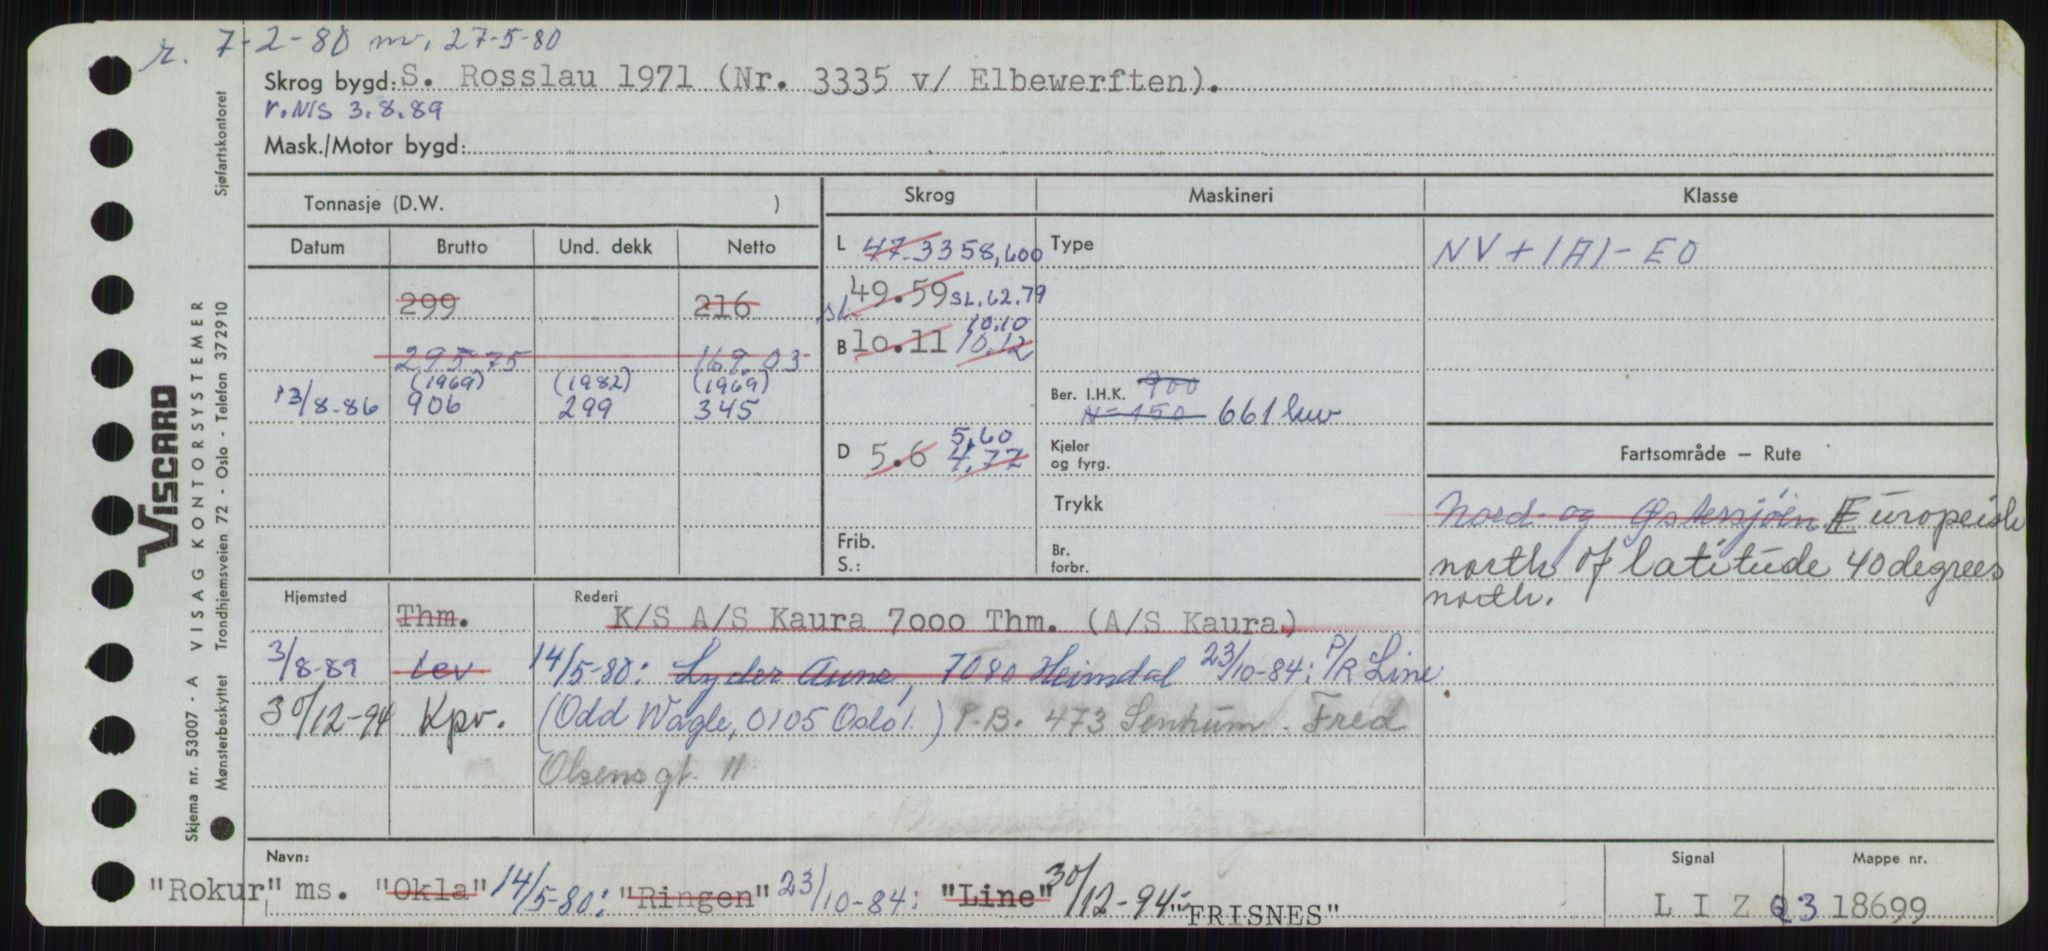 r. 7-2-80 m. 27-5-80
Skrog bygd: S. Rosslau 1971 (Nr. 3335 v/ Elbewerften).
r.NIS 3.8.89
Mask./Motor bygd:
Tonnasje (D.W. )
Skrog Maskineri Klasse
Datum Brutto Und. dekk Netto
L 47.33 58,600 Type NV + 1A1 - EO
299 216
SL 49.59 SL. 62.79
B 10.11 10.12 10.10
295.75 169.03
(1969) (1982) (1969)
13/8-86 906 299 345
Ber. I.H.K. 900
N = 450 661 kw
D 5.6 4.77 5,60
Kjeler og fyrg.
Fartsområde — Rute
Trykk
Nord- og Østersjøen. Europeisk
north of latitude 40 degrees
north.
Frib.
S.:
Br. forbr.
Hjemsted Thm. Rederi K/S A/S Kaura 7000 Thm. (A/S Kaura)
3/8-89 Lev 14/5-80: Lyder Aune, 7080 Heimdal 23/10-84: P/R Line
30/12-94 Kpv. (Odd Wagle, 0105 Oslo 1.) P.B. 473 Sentrum. Fred
Olsens gt. 11
Navn: Signal Mappe nr.
"Rokur" ms. "Okla" 14/5-80: "Ringen" 23/10-84: "Line" 30/12-94: "FRISNES" L I Z Q 3 18699
VISCARD
Skjema nr. 53007 - A VISAG KONTORSYSTEMER
Mønsterbeskyttet Trondhjemsveien 72 - Oslo - Telefon 372910 Sjøfartskontoret